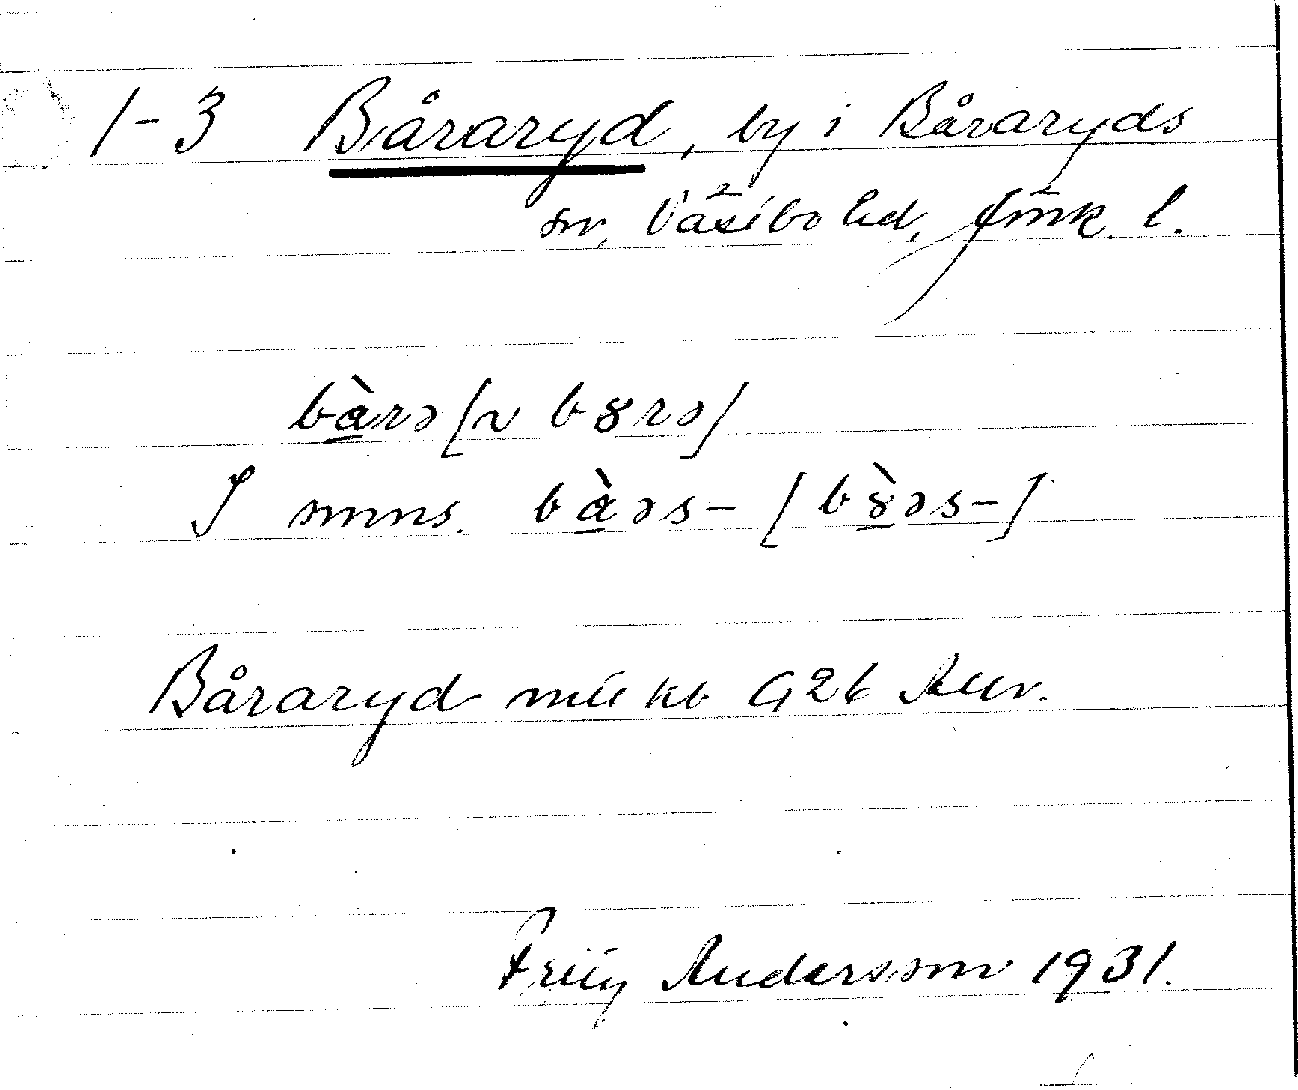 1-3 Båraryd, by i Båraryds
sn, Västbo hd, Jönk. l.
bàrə [~ bȣrə]
I smns. bàəs- [bȣ̀əs-]
Båraryd mtl kb G26 Auv.
Fritz Andersson 1931.